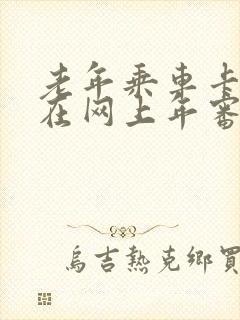 老年乘车卡
在网上年审
乌吉熱克鄉買